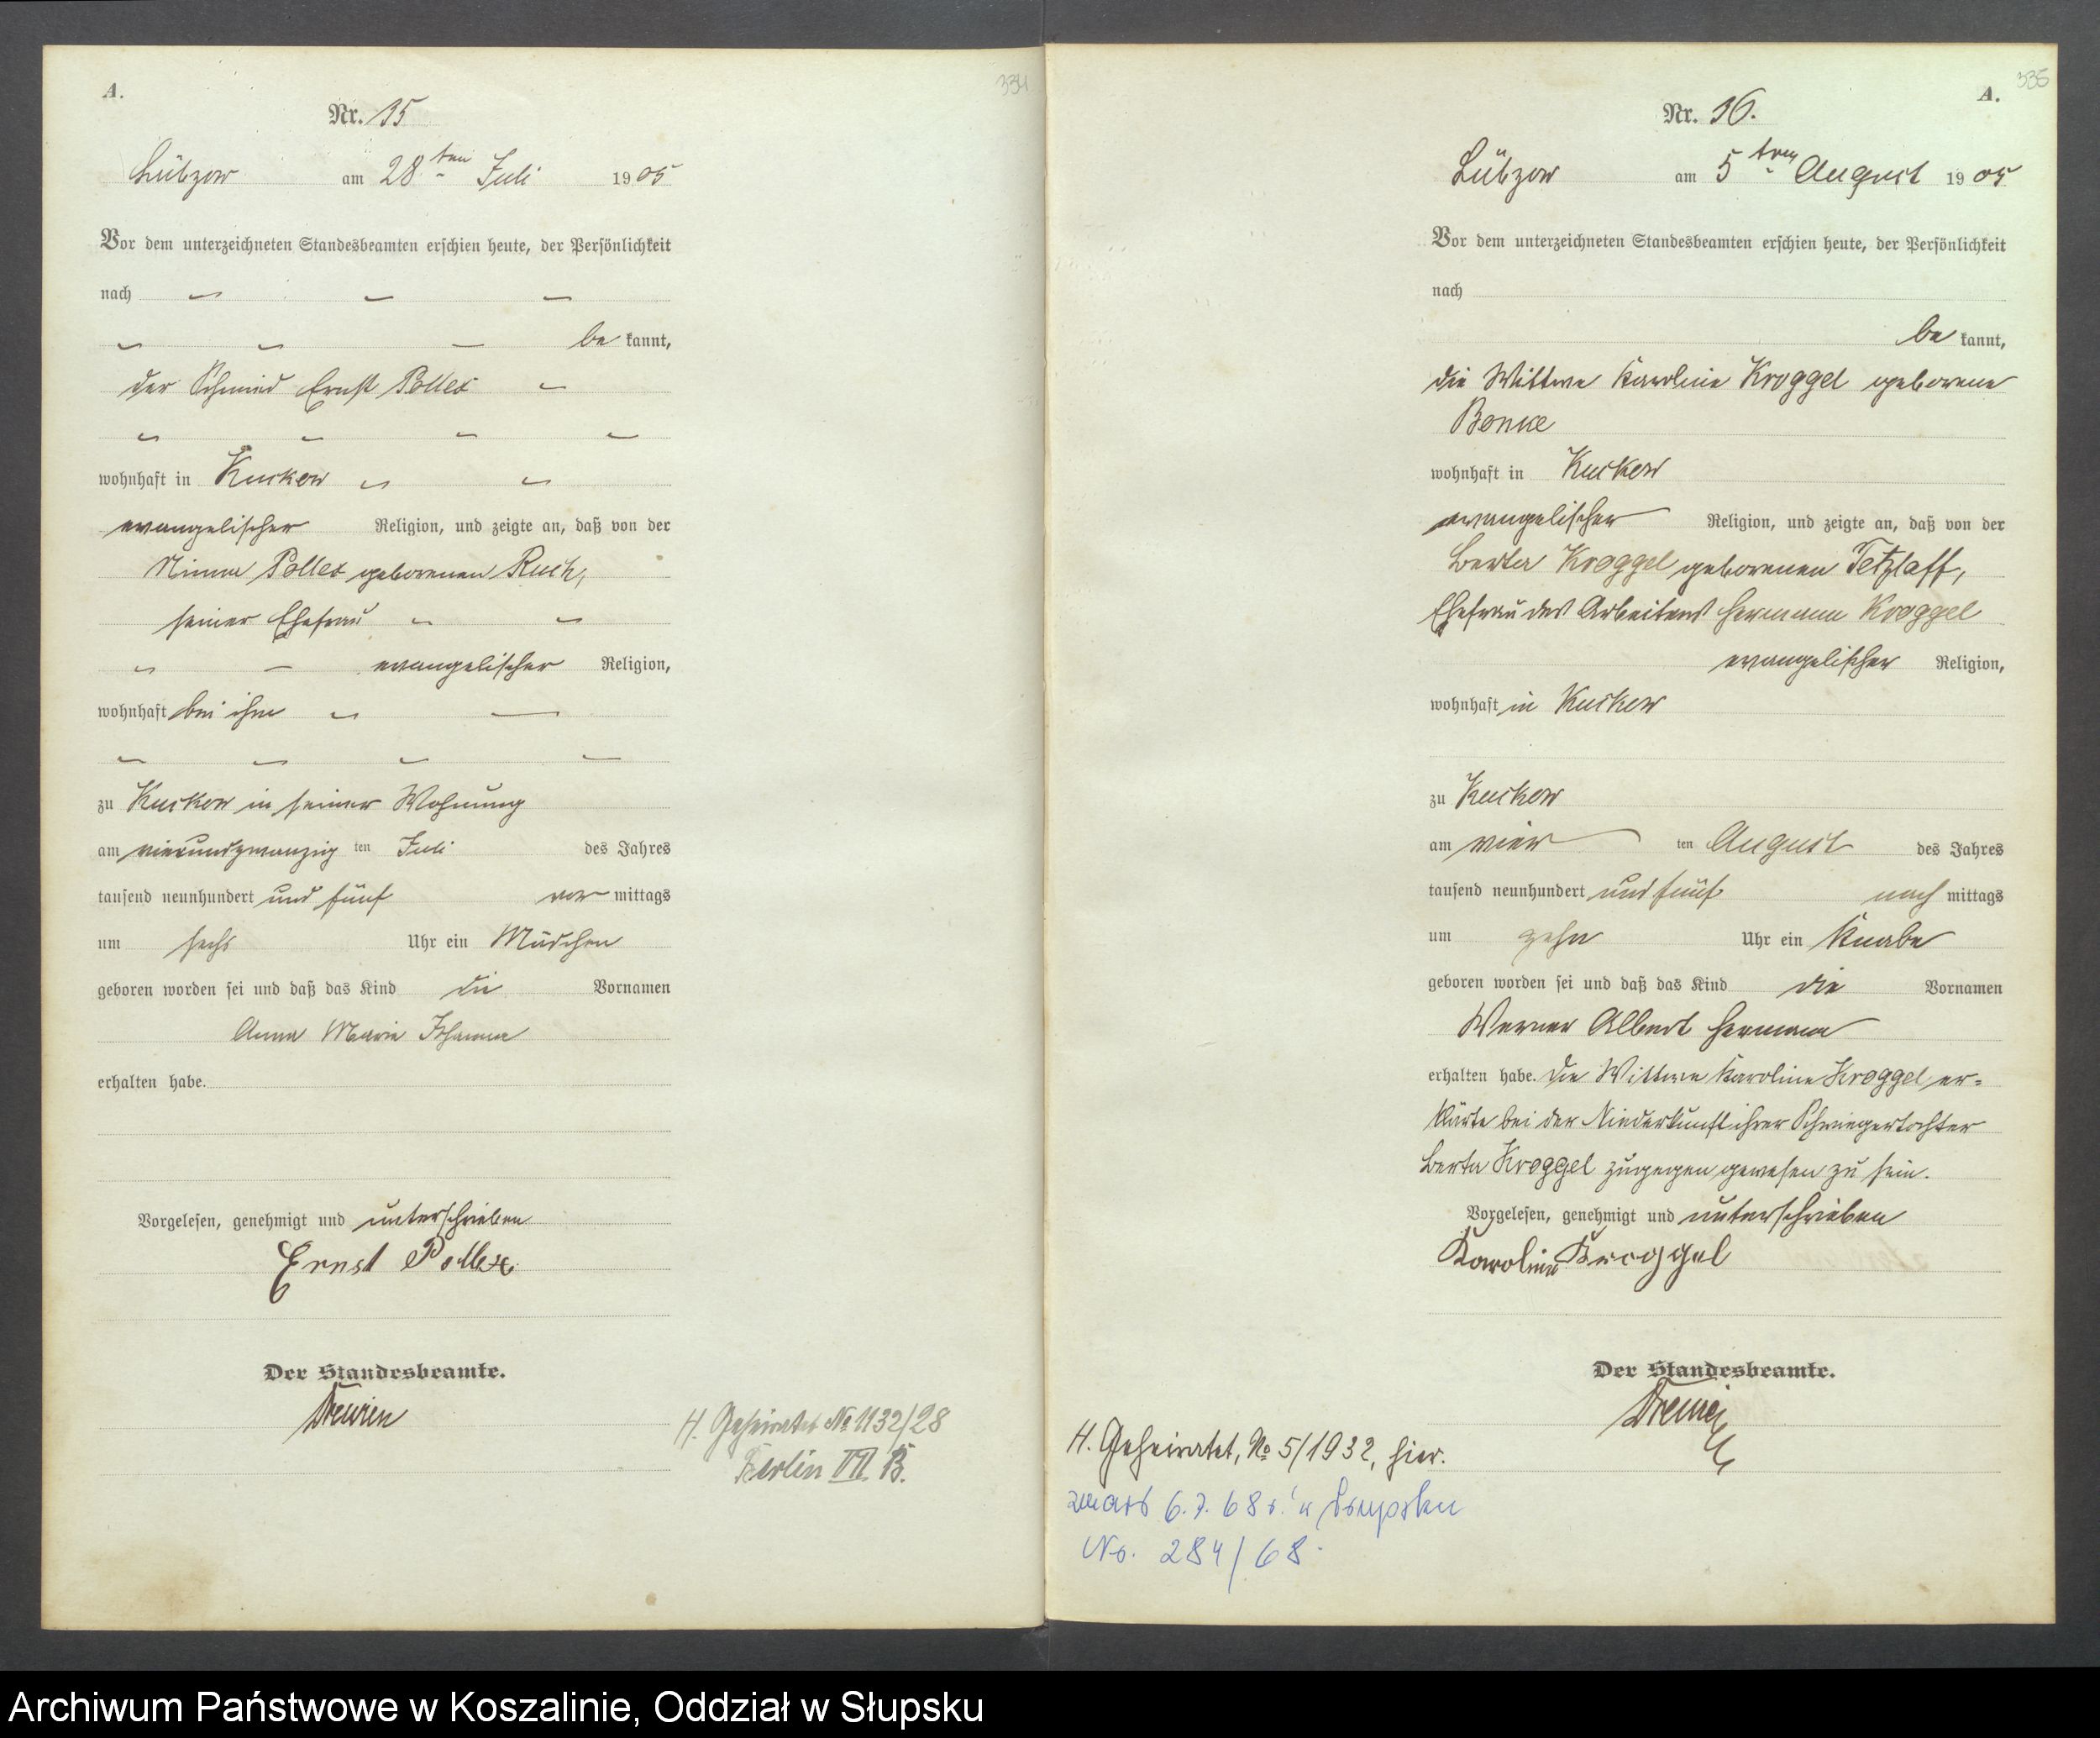 A.
334
Nr. 35
Lübzow am 28ten Juli 1905
Vor dem unterzeichneten Standesbeamten erschien heute, der Persönlichkeit
nach
be kannt,
der Schmied Ernst Pollex
wohnhaft in Kuskow
evangelischer Religion, und zeigte an, daß von der
Minna Pollex geborenen Ruch,
seiner Ehefrau
evangelischer Religion,
wohnhaft bei ihm
zu Kuskow in seiner Wohnung
am vierundzwanzig ten Juli des Jahres
tausend neunhundert und fünf vor mittags
um sechs Uhr ein Mädchen
geboren worden sei und daß das Kind die Vornamen
Anna Marie Johanna
erhalten habe.
Vorgelesen, genehmigt und unterschrieben
Ernst Pollex
Der Standesbeamte.
H. Geheiratet No 1132/28
Berlin VII B.
A.
335
Nr. 36.
Lübzow am 5ten August 1905
Vor dem unterzeichneten Standesbeamten erschien heute, der Persönlichkeit
nach
be kannt,
die Wittwe Karoline Kroggel geborene
wohnhaft in Kuskow
evangelischer Religion, und zeigte an, daß von der
Berta Kroggel geborenen Tetzlaff,
Ehefrau des Arbeiters Hermann Kroggel
evangelischer Religion,
wohnhaft in Kuskow
zu Kuskow
am vier ten August des Jahres
tausend neunhundert und fünf nach mittags
um zehn Uhr ein Knabe
geboren worden sei und daß das Kind die Vornamen
Werner Albert Hermann
erhalten habe. Die Wittwe Karoline Kroggel er-
klärte bei der Niederkunft ihrer Schwiegertochter
Berta Kroggel zugegen gewesen zu sein.
Vorgelesen, genehmigt und unterschrieben
Karoline Kroggel
Der Standesbeamte.
H. Geheiratet, No 5/1932, hier.
zmarł 6.7.68 r. w Słupsku
No. 284/68
Archiwum Państwowe w Koszalinie, Oddział w Słupsku